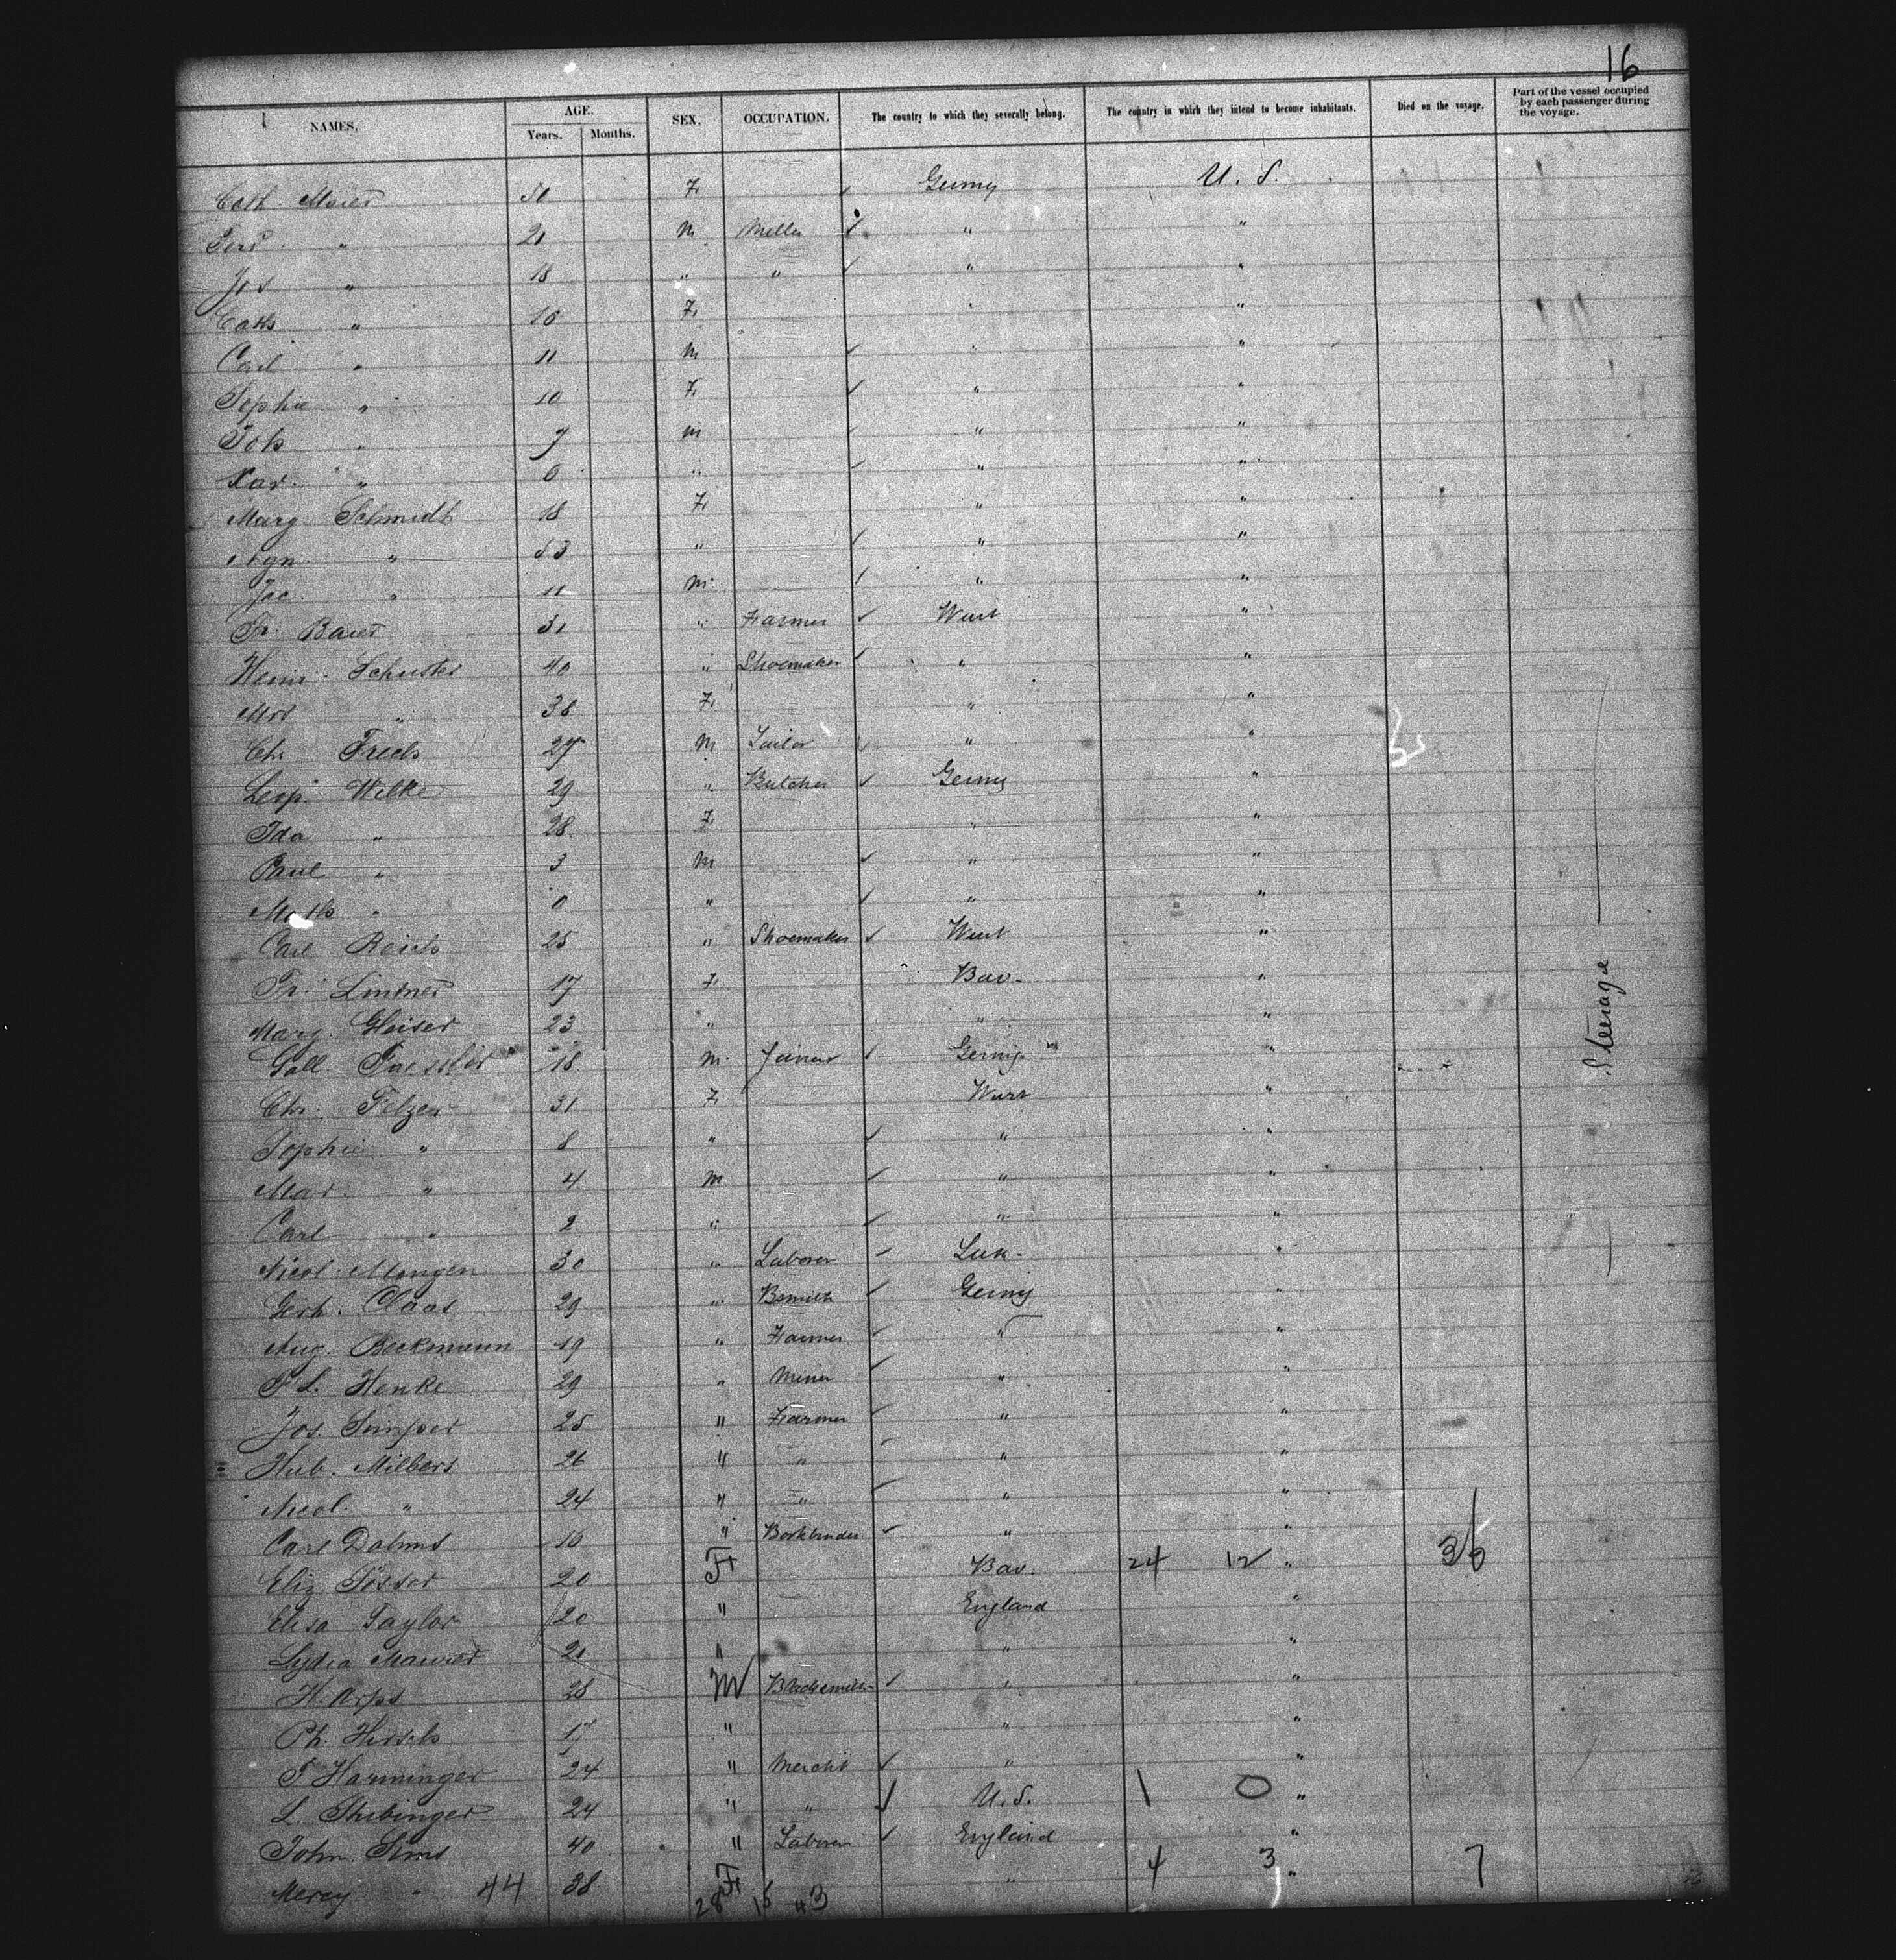 16
NAMES. AGE. Years. Months. SEX. OCCUPATION. The country to which they severally belong. The country in which they intend to become inhabitants. Died on the voyage. Part of the vessel occupied by each passenger during the voyage.
Cath. Maier 50 F. Germy U. S.
Ferd " 21 M Miller " "
Jos " 18 " " " "
Cath " 16 F. " "
Carl " 11 M " "
Sophie " 10 F. " "
Joh " 7 m " "
Xav. " 6 " " "
Marg Schmidt 18 F. " "
Agn. " 53 " " "
Jac. " 11 M. " "
Fr. Bauer 31 " Farmer Wurt "
Heinr. Schuster 40 " Shoemaker " "
Mrs " 38 F. " "
Chr Frech 27 M Tailor " "
Leop. Wilke 29 " Butcher Germy "
Ida " 28 F. " "
Paul " 3 M " "
Math " 0 " " "
Carl Reich 25 " Shoemaker Wurt "
Fr. Lintner 17 F. Bav. "
Marg. Gleiser 23 " " "
Gall. Fassler 18 M. Joiner Germy "
Chr. Felzer 31 F. Wurt "
Sophie " 8 " " "
Mar " 4 M " "
Carl " 2 " " "
Nicol. Mongen 30 " Laborer Lux. "
Gerh. Claas 29 " Bsmith Germy "
Aug. Beckmann 19 " Farmer " "
F L. Henke 29 " Miner " "
Jos. Simper 25 " Farmer " "
Hub. Milbers 26 " " " "
Nicol. " 24 " " " "
Carl Dahms 16 " Bookbinder " "
Eliz. 20 F Bav. 24 12 " 36
Elisa Taylor 20 " England "
Lydia 21 " " "
H. Arps 28 M Blacksmith " "
Ph. Hirsch 17 " " "
F Harminger 24 " Mercht " "
L. Thebinger 24 " " U. S. 1 0 "
John Sims 40 " Laborer England "
Mercy " 44 38 F " 4 3 " 7
28 15 43
Steerage